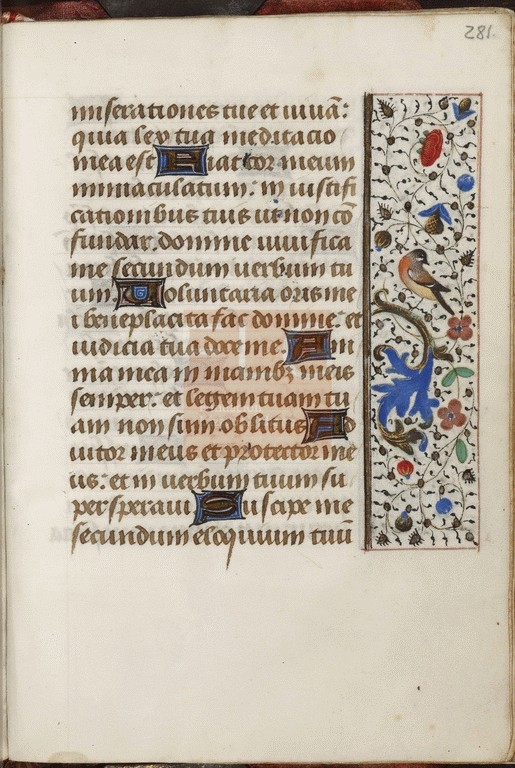 281
miserationes tue et uiuā:
quia lex tua meditacio
mea est Fiat cor meum
inmaculatum: in iustifi
cationibus tuis ut non cō
fundar. domine uiuifica
me secundum uerbum tu
um. Uoluntaria oris me
i beneplacita fac domine: et
iudicia tua doce me. Ani
ma mea in manibꝫ meis
semper: et legem tuam tu
am non sum oblitus Ad
iutor meus et protector me
us: et in uerbum tuum su
persperaui Suscipe me
secundum eloquium tuū